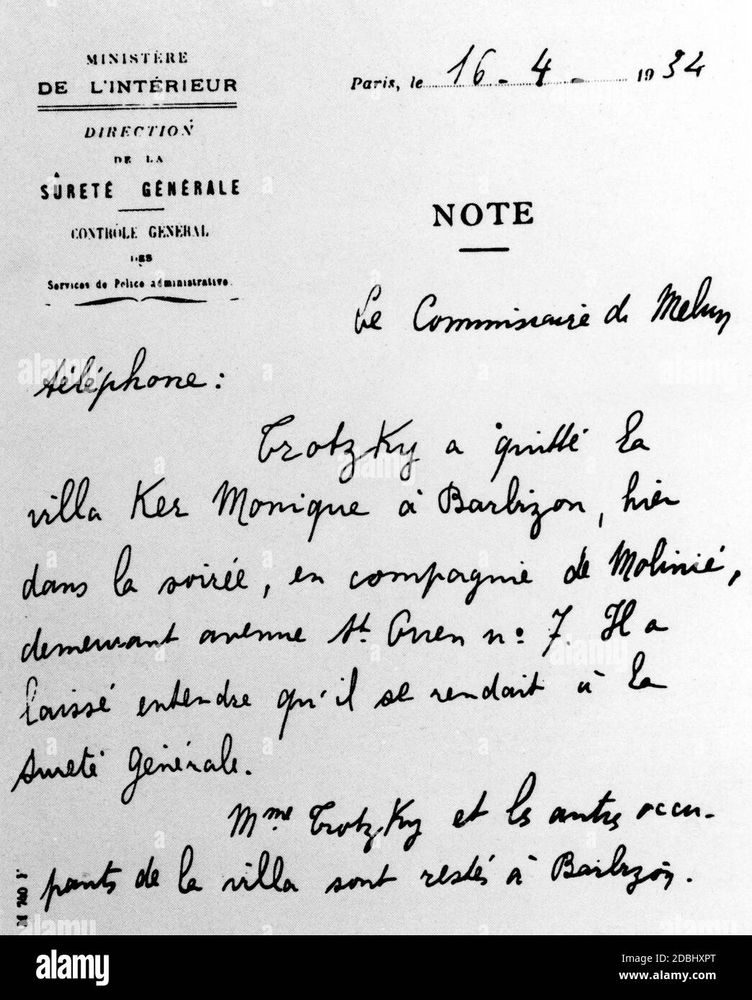 MINISTÈRE
DE L'INTÉRIEUR
DIRECTION
DE LA
SÛRETÉ GÉNÉRALE
CONTRÔLE GENERAL
DES
Services de Police administrative.
Paris, le 16-4-1934
NOTE
Le Commissaire de Melun
téléphone:
Trotzky a quitté la
villa Ker Monique à Barbizon, hier
dans la soirée, en compagnie de Molinié,
demeurant avenue St. Ouen n° 7. Il a
laissé entendre qu'il se rendait à la
Sureté Générale.
Mme Trotzky et les autres occu-
pants de la villa sont restés à Barbizon.
alamy
Image ID: 2DBHXPT
www.alamy.com